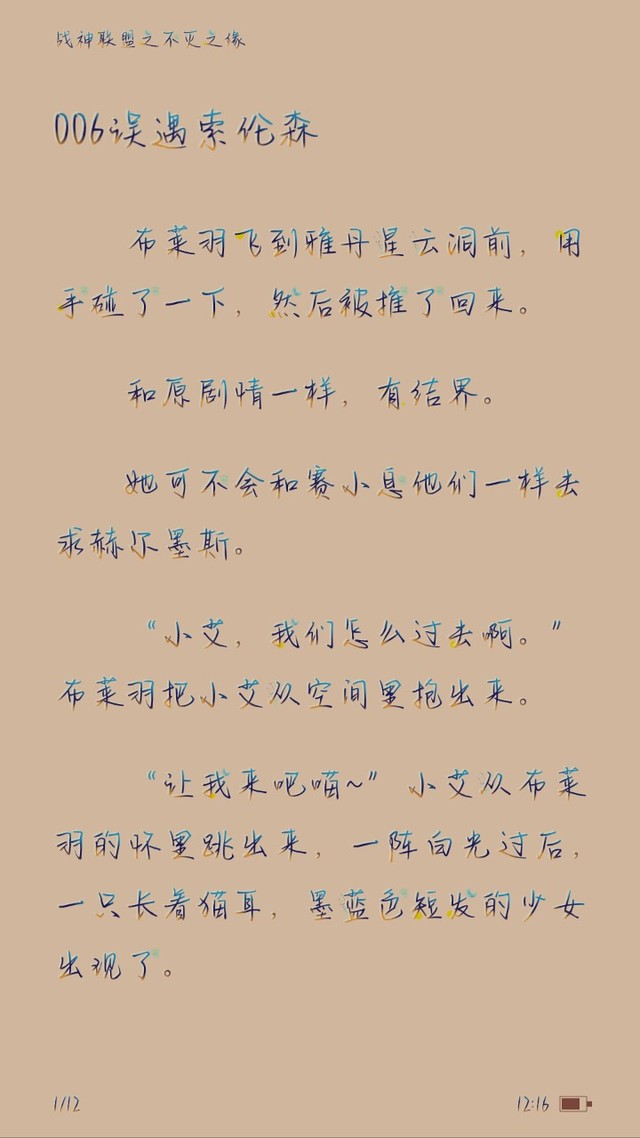 战神联盟之不灭之缘
006误遇索伦森
布莱羽飞到雅丹星云洞前，用
手碰了一下，然后被推了回来。
和原剧情一样，有结界。
她可不会和赛小息他们一样去
求赫尔墨斯。
“小艾，我们怎么过去啊。”
布莱羽把小艾从空间里抱出来。
“让我来吧喵~”小艾从布莱
羽的怀里跳出来，一阵白光过后，
一只长着猫耳，墨蓝色短发的少女
出现了。
1/12
12:16